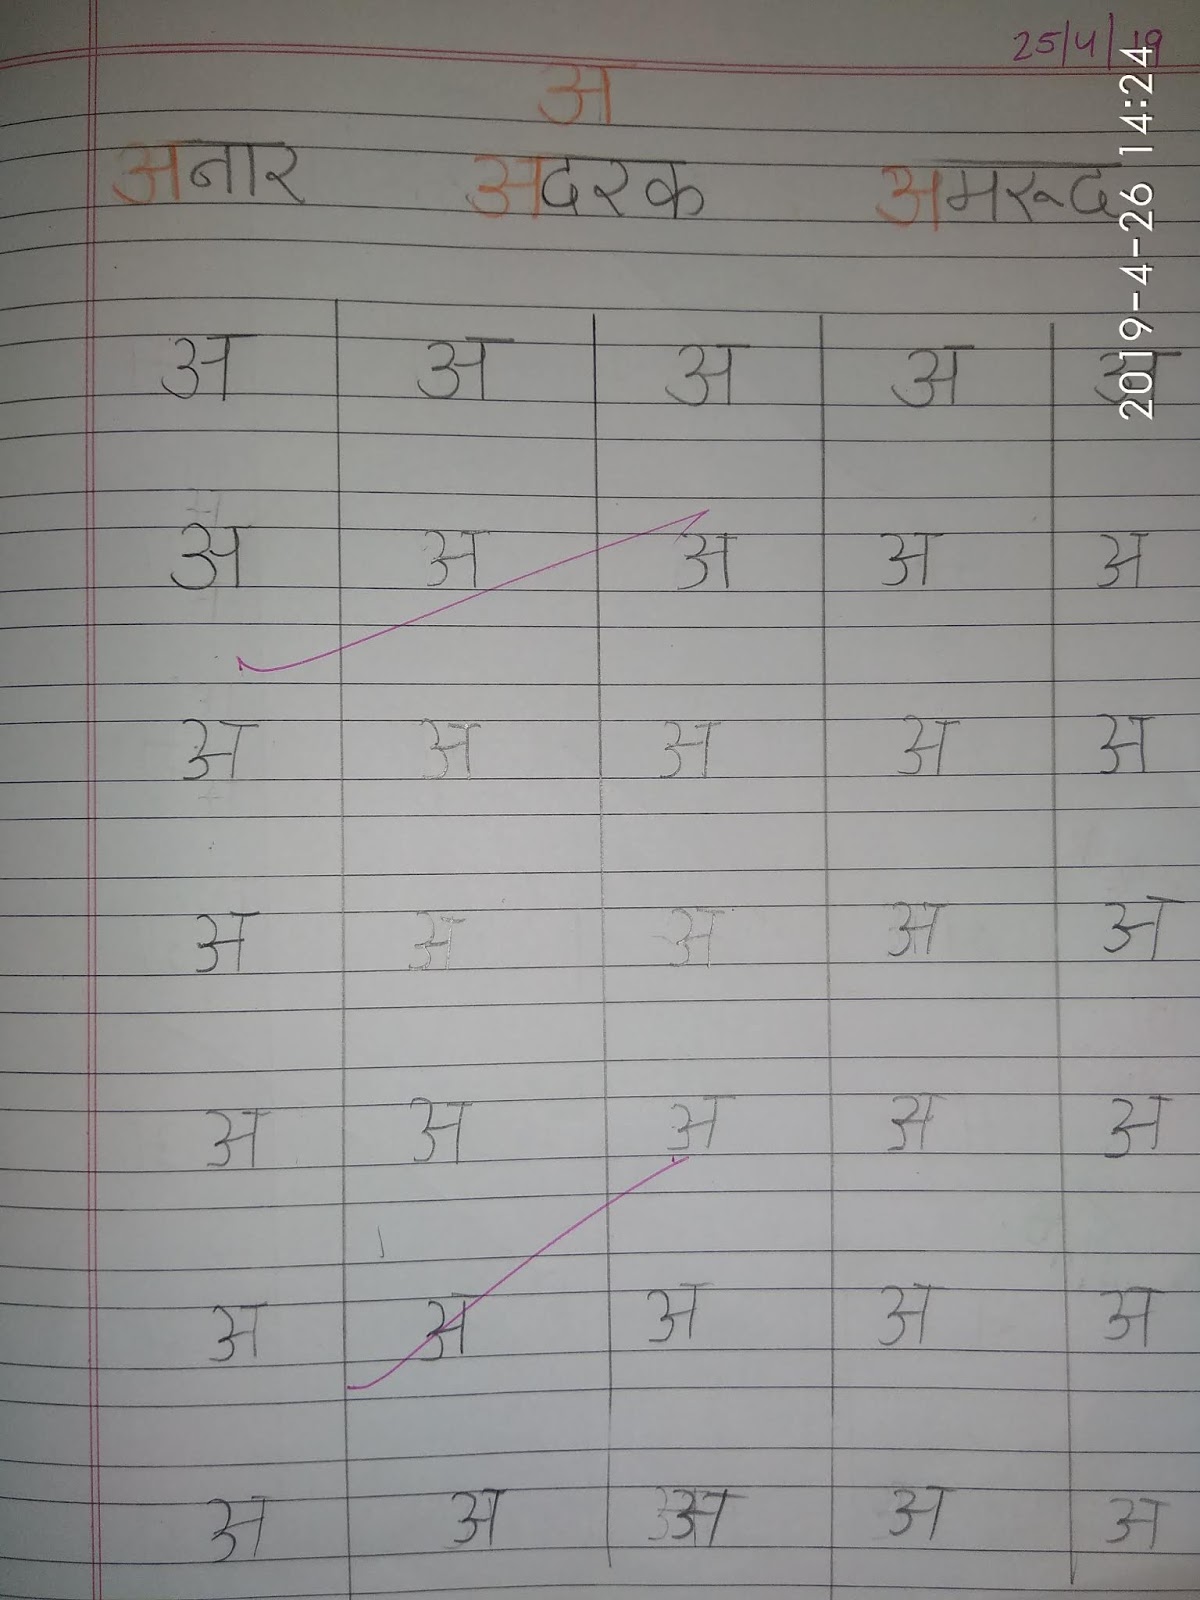 25/4/19
अ
अनार अदरक अमरूद
अ अ अ अ अ
अ अ अ अ अ
अ अ अ अ अ
अ अ अ अ अ
अ अ अ अ अ
अ अ अ अ अ
अ अ अ अ अ
2019-4-26 14:24